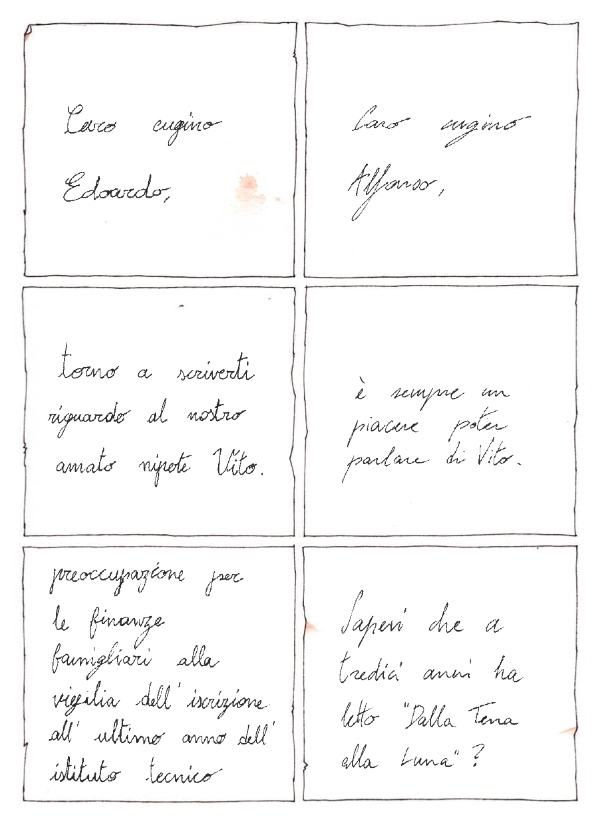 Caro cugino
Edoardo,
Caro cugino
Alfonso,
torno a scriverti
riguardo al nostro
amato nipote Vito.
è sempre un
piacere poter
parlare di Vito.
preoccupazione per
le finanze
famigliari alla
vigilia dell'iscrizione
all'ultimo anno dell'
istituto tecnico
Sapevi che a
tredici anni ha
letto "Dalla Terra
alla Luna"?